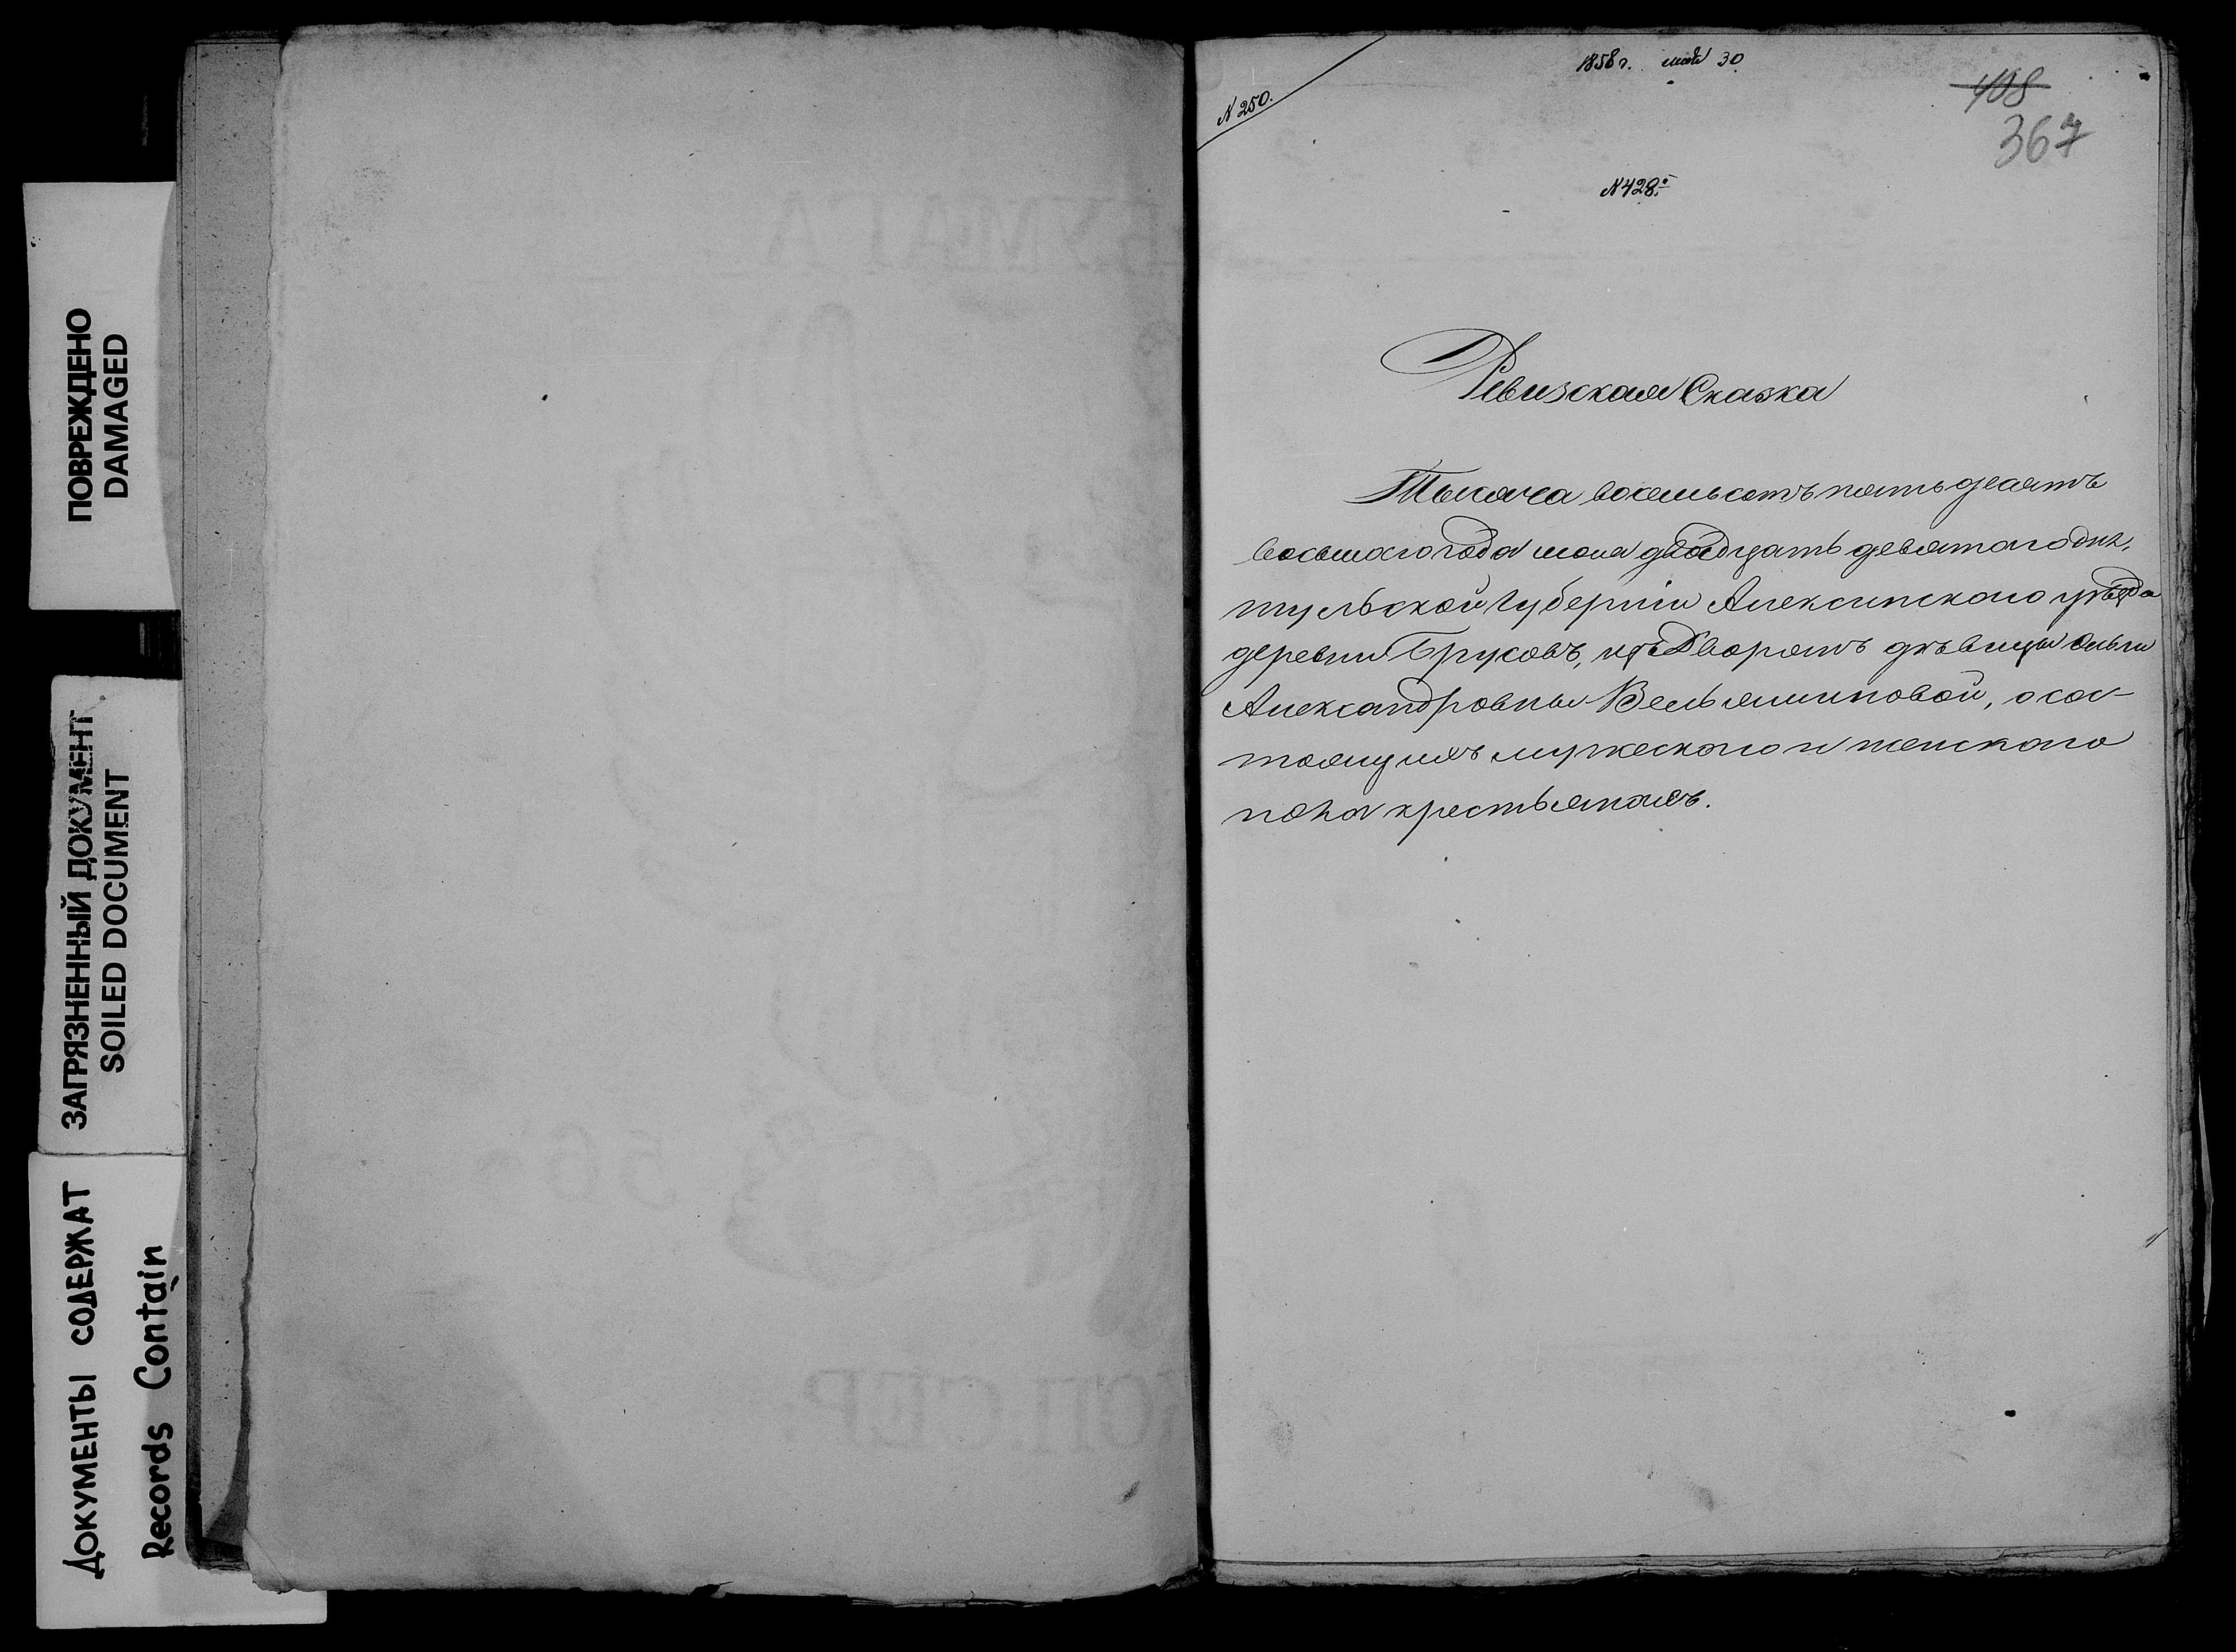 ПОВРЕЖДЕНО
DAMAGED
ЗАГРЯЗНЕННЫЙ ДОКУМЕНТ
SOILED DOCUMENT
ДОКУМЕНТЫ СОДЕРЖАТ
Records Contain
1858 г. мая 30
N 250.
408
367
N 428.
Ревизская Сказка
Тысяча восемьсотъ пятьдесятъ
восьмаго года мая двадцать девятаго дня,
тульской губерніи Алексинскаго уѣзда
деревни Брусовъ, изъ Дворянъ дѣвицы Ольги
Александровны Вельяминовой, о сос-
тоящихъ мужескаго и женскаго
пола крестьянахъ.